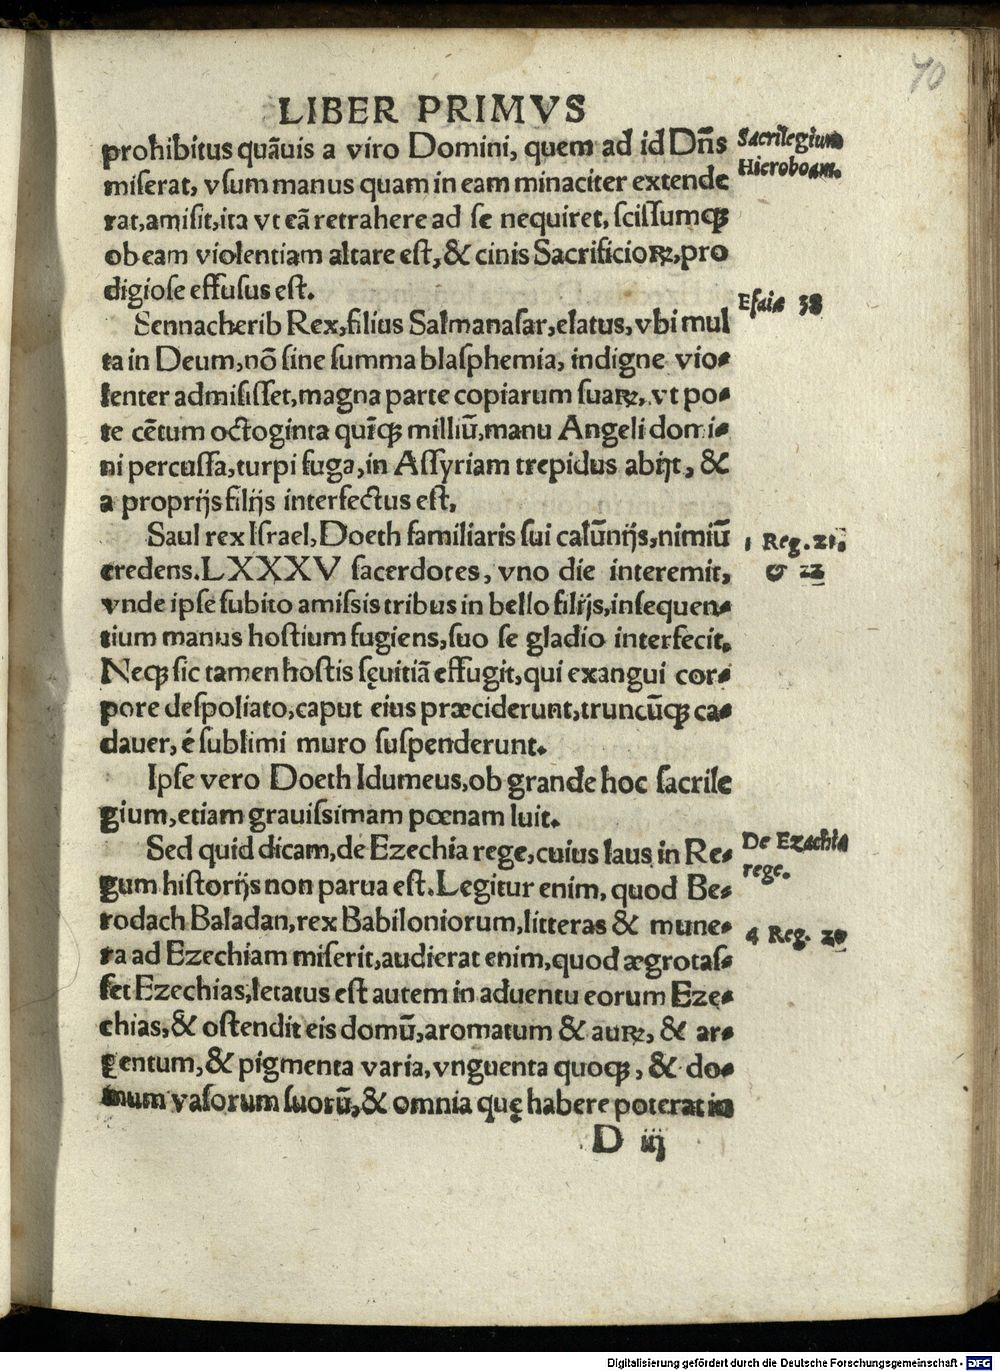 40
LIBER PRIMVS
prohibitus quãuis a viro Domini, quem ad id Dñs
Sacrilegium
miſerat, vſum manus quam in eam minaciter extende
Hieroboam.
rat, amiſit, ita vt eã retrahere ad ſe nequiret, ſciſſumqꝫ
ob eam violentiam altare eſt, & cinis Sacrificioꝝ, pro
digioſe effuſus eſt.
Eſaiæ 38
Sennacherib Rex, filius Salmanaſar, elatus, vbi mul
ta in Deum, nõ ſine ſumma blaſphemia, indigne vio⸗
lenter admiſiſſet, magna parte copiarum ſuaꝝ, vt po⸗
te cẽtum octoginta quĩqꝫ milliũ, manu Angeli domi⸗
ni percuſſa, turpi fuga, in Aſſyriam trepidus abijt, &
a proprijs filijs interfectus eſt.
Saul rex Iſrael, Doeth familiaris ſui calũnijs, nimiũ
1 Reg. 21.
credens. LXXXV ſacerdotes, vno die interemit,
& 22
vnde ipſe ſubito amiſsis tribus in bello filijs, inſequen⸗
tium manus hoſtium fugiens, ſuo ſe gladio interfecit.
Neqꝫ ſic tamen hoſtis ſęuitiã effugit, qui exangui cor⸗
pore deſpoliato, caput eius præciderunt, truncũqꝫ ca⸗
dauer, é ſublimi muro ſuſpenderunt.
Ipſe vero Doeth Idumeus, ob grande hoc ſacrile
gium, etiam grauiſsimam pœnam luit.
Sed quid dicam, de Ezechia rege, cuius laus in Re⸗
De Ezechia
rege.
gum hiſtorijs non parua eſt. Legitur enim, quod Be⸗
rodach Baladan, rex Babiloniorum, litteras & mune⸗
4 Reg. 20
ra ad Ezechiam miſerit, audierat enim, quod ægrotaſ⸗
ſet Ezechias, letatus eſt autem in aduentu eorum Eze⸗
chias, & oſtendit eis domũ, aromatum & auꝝ, & ar⸗
gentum, & pigmenta varia, vnguenta quoqꝫ, & do⸗
mum vaſorum ſuorũ, & omnia quę habere poterat in
D iij
Digitalisierung gefördert durch die Deutsche Forschungsgemeinschaft - DFG